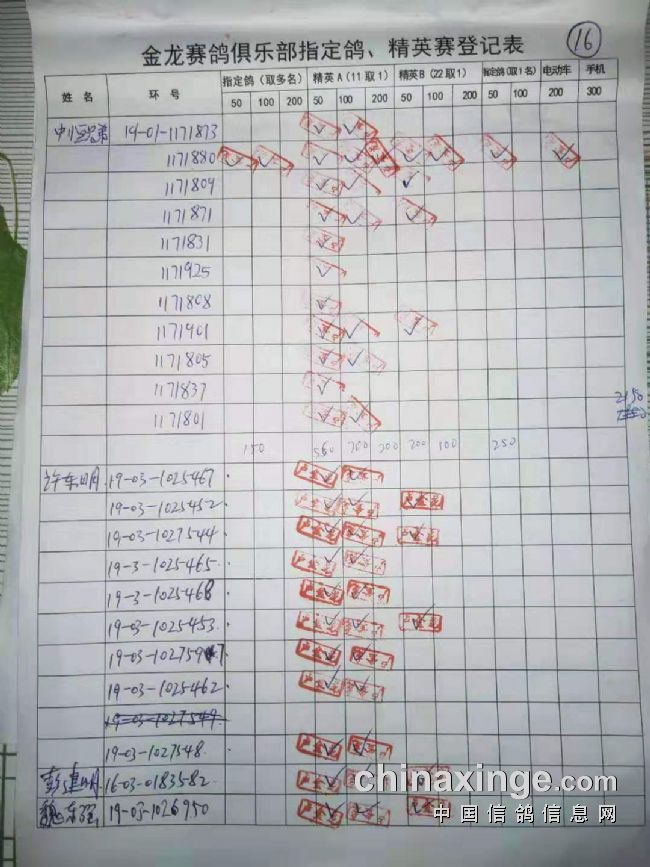 金龙赛鸽俱乐部指定鸽、精英赛登记表 16
姓 名 环 号 指定鸽（取多名） 精英A（11取1） 精英B（22取1） 指定鸽（取1名） 电动车 手机
50 100 200 50 100 200 50 100 200 50 100 200 300
19-01-1171873
1171880
1171809
1171871
1171831
1171925
1171808
1171901
1171805
1171837
1171801
2150
150 550 700 200 200 100 250
许东明 19-03-1025467
19-03-1025452
19-03-1027544
19-3-1025465
19-3-1025468
19-03-1025453
19-03-1025462
19-03-1027549
19-03-1027548
彭建明 16-03-0183582
魏东强 19-03-1026950
chinaxinge.com
中国信鸽信息网